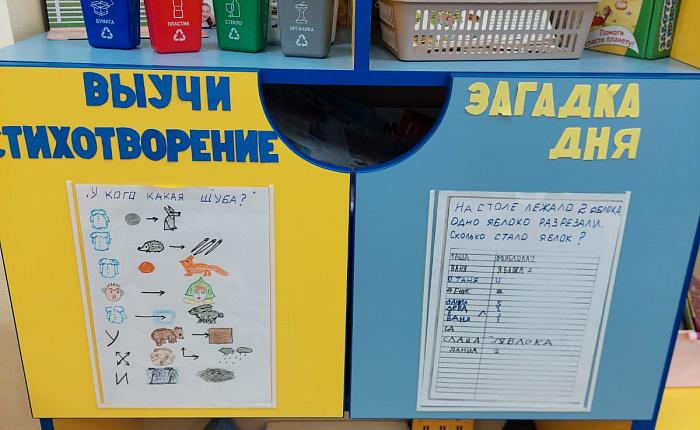 БУМАГА
ПЛАСТИК
СТЕКЛО
ОРГАНИКА
Помоги
спасти планету!
ВЫУЧИ
СТИХОТВОРЕНИЕ
ЗАГАДКА
ДНЯ
„У КОГО КАКАЯ ШУБА?"
У
И
НА СТОЛЕ ЛЕЖАЛО 2 ЯБЛОКА
ОДНО ЯБЛОКО РАЗРЕЗАЛИ.
СКОЛЬКО СТАЛО ЯБЛОК?
САША
ВАНЯ ЯБЛАКА 2
ТАНЯ
ВАНЯ
СЛАВА ЯБЛОКА